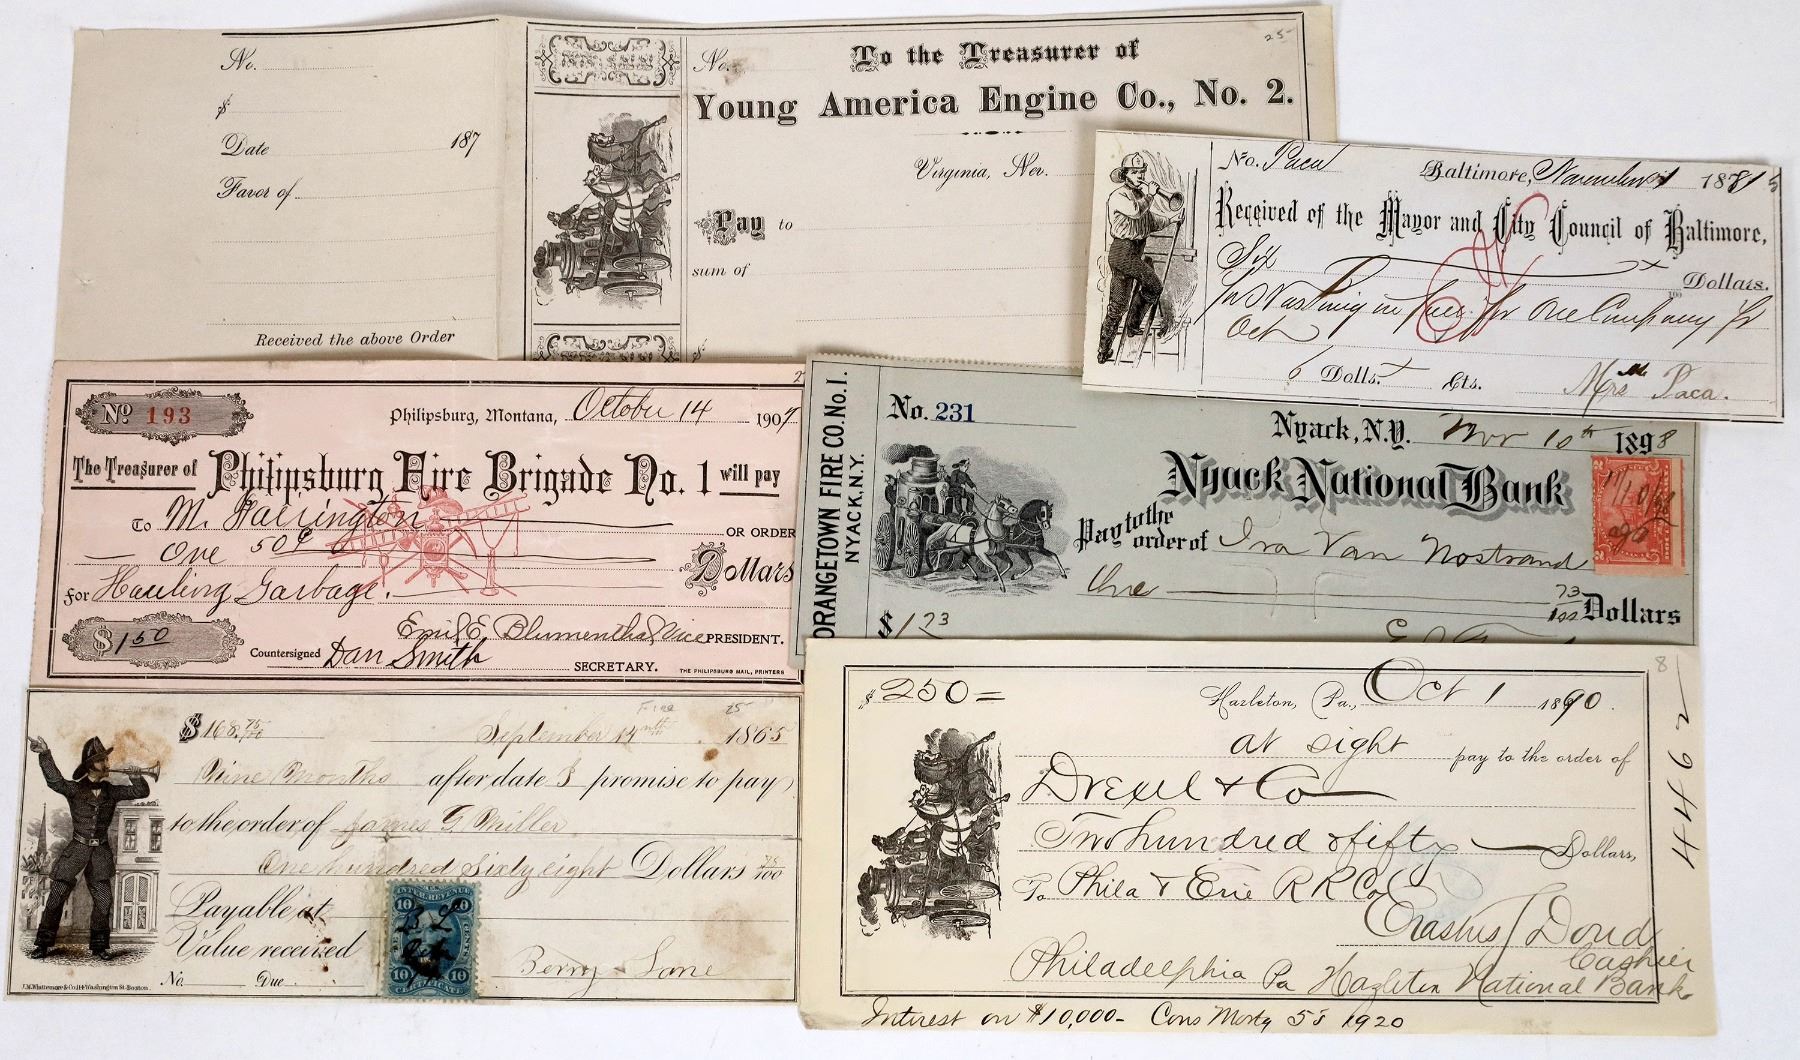 No.
$
Date 187
Favor of
Received the above Order
25-
No. To the Treasurer of
Young America Engine Co., No. 2.
Virginia, Nev.
Pay to
sum of
$
No. Paca Baltimore, November 1 1881
Received of the Mayor and City Council of Baltimore,
Six Dollars.
100
for Washing in for One Company for
Oct
6 Dolls. Cts. Mrs M Paca.
No 193
Philipsburg, Montana, October 14 1907
The Treasurer of Philipsburg Fire Brigade No. 1 will pay
To M. Harrington OR ORDER
One 50 Dollars
For Hauling Garbage.
$1.50 Emil E. Blumenthal Vice PRESIDENT.
Countersigned Dan Smith SECRETARY. THE PHILIPSBURG MAIL, PRINTERS
ORANGETOWN FIRE CO. No. 1.
NYACK, N.Y.
No. 231 Nyack, N.Y. Nov 10th 1898
Nyack National Bank
Pay to the order of Ira Van Nostrand
One 73/100 Dollars
$1 73
Fire 25-
$168.75/100 September 14th 1865
Nine Months after date I promise to pay
to the order of James G. Miller
One hundred Sixty eight Dollars 75/100
Payable at
Value received
No. Due Berry Lane
J.M. Whittemore & Co. 114 Washington St. Boston.
INTER. REVENUE
10 10
10 CENTS 10
CERTIFICATE
8
$250= Hazleton, Pa., Oct 1 1890.
at sight pay to the order of
Drexel & Co
Two hundred & fifty Dollars,
To Phila & Erie R R Co. Erastus Doud
Cashier
Philadelphia Pa Hazleton National Bank.
Interest on $10,000- Cons Mortg 5s 1920
4462